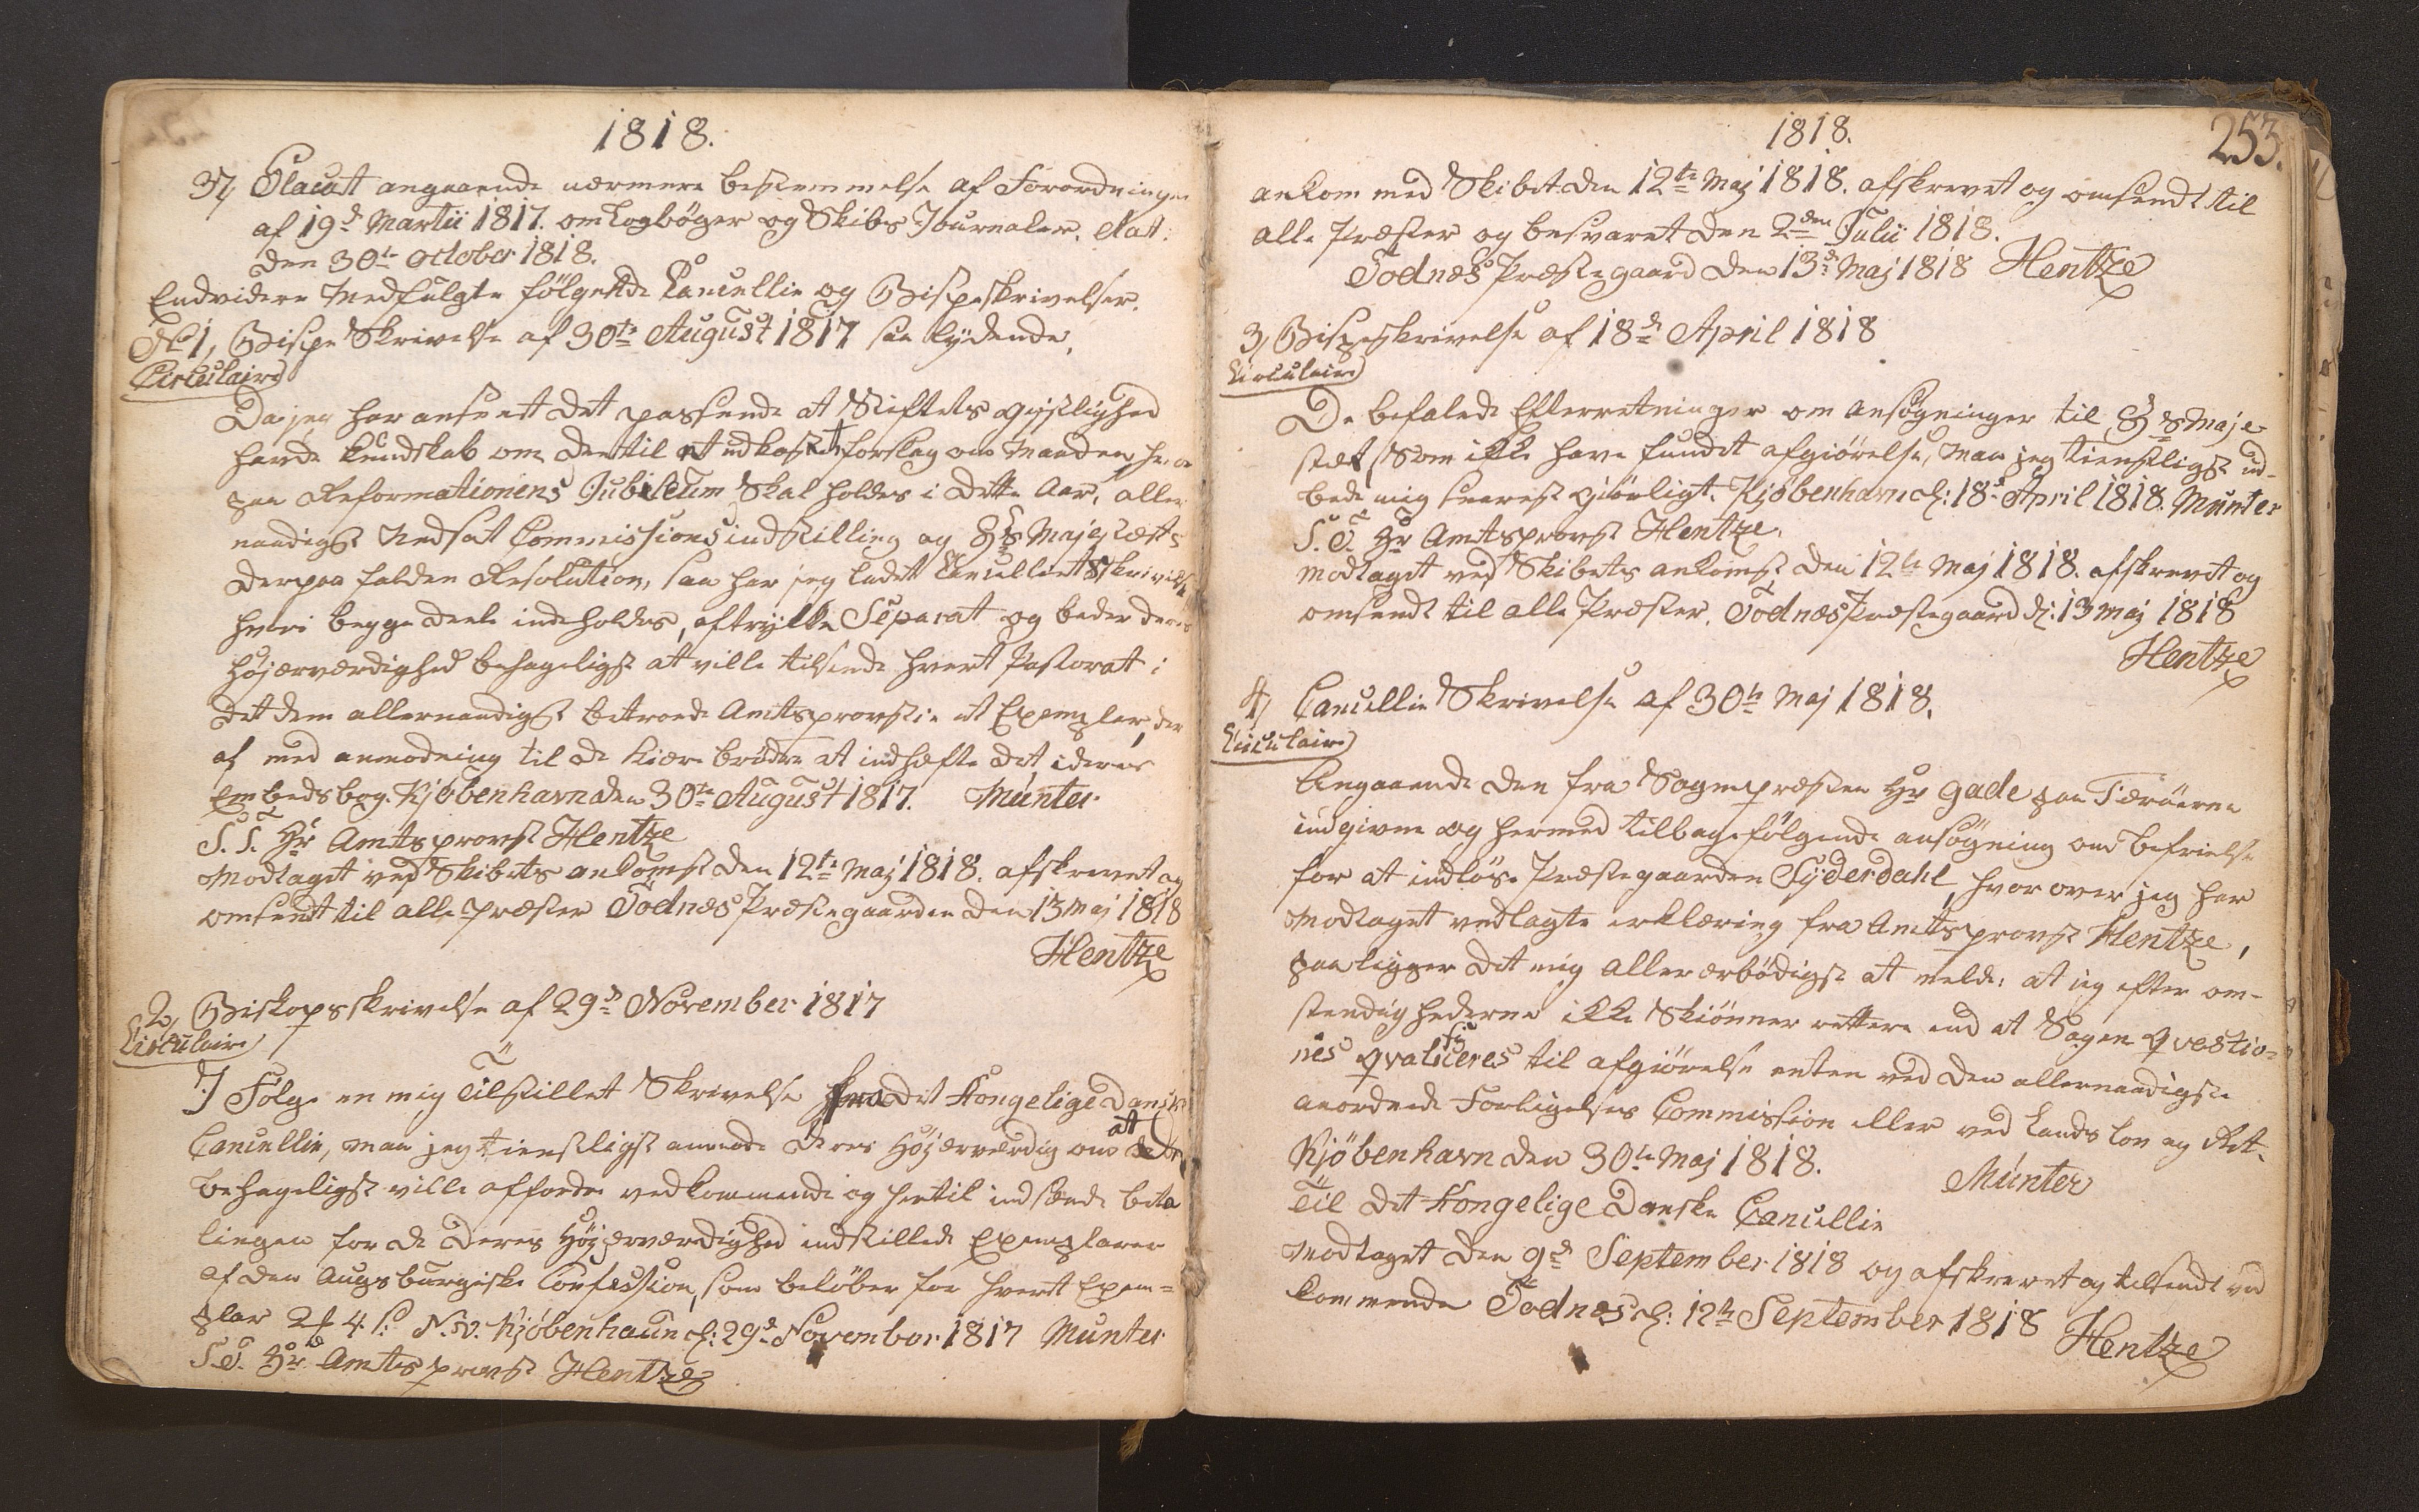 1818.
37, Placat angaaende nærmere bestemmelse af Forordningen
af 19d Martii 1817. om Logbøger og Skibs Journaler. Dat:
den 30te October 1818.
Endvidere Medfulgte fölgende Cancellie og Bispeskrivelser.
No 1, Bispe Skrivelse af 30te August 1817 saa lydende,
Circulaire
Da jeg har anseet det passende at Stiftets gejstlighed
havde kundskab om den til at udkaste forslag om Maaden, hvor
paa Reformationens Jubilæum skal holdes i dette Aar, aller
naadigst Nedsat Commissions indstilling og Hs Majestæts
derpaa falden Resolution, saa har jeg ladet Cancelliets Skrivelse
hvori begge deele indeholdes, aftrykke Separat og beder deres
Höjærværdighed behageligst at ville tilsende hvert Pastorat i
det dem allernaadigst betroede Amtsprovstie et Exemplar, der
af med anmodning til de kiære brödre at indhæfte det i deres
Embedsbog. Kjöbenhavn den 30te August 1817. Münter.
S. T. Hr Amtsprovst Hentze
Modtaget ved Skibets ankomst den 12te Maj 1818. afskrevet og
omsendt til alle Præster Todnæs Præstegaarden den 13 Maj 1818
Hentze
2, Biskopsskrivelse af 29d November 1817
Circulaire
I Fölge en mig Tilstillet Skrivelse fra Det Kongelige Dansk
Cancellie, maa jeg tienstligst anmode deres Höjærværdig om at de
behageligst ville affordre vedkommende og hertil indsænde beta
lingen for de Deres Höjærværdighed indstillede Exemplarer
af den Augsburgiske Confession, som belöber for hvert Exem=
plar 2 4 N. V. Kjöbenhaun d: 29d November 1817 Münter
S. T. Hr Amtsprovst Hentze
1818.
253.
ankom med Skibet den 12te Maj 1818. afskrevet og omsendt til
alle Præster og besvaret den 2den Julii 1818.
Todnæs Præstegaard den 13d Maj 1818 Hentze
3, Bispeskrivelse af 18d April 1818
Circulaire
De befalede Efterretninger om ansøgninger til Hs Maje
stæt, som ikke have fundet afgiörelse, maa jeg tienstligst ud-
bede mig snarest giörligt. Kjöbenhavn d: 18d April 1818. Münter
S. T. Hr Amtsprovst Hentze.
Modtaget ved Skibets ankomst den 12te Maj 1818. afskrevet og
omsendt til alle Præster. Todnæs Præstegaard d: 13 Maj 1818
Hentze
4, Cancellie Skrivelse af 30te Maj 1818.
Circulaire
Angaaende den fra Sognepræsten Hr Gade paa Færöerne
indgivne og hermed tilbagefölgende ansögning om befrielse
for at indlöse Præstegaarden Syderdahl, hvorover jeg har
Modtaget vedlagte erklæring fra Amtsprovst Hentze,
paaligger det mig allerærbödigst at melde: at jeg efter om-
stændighederne ikke skiönner rettere end at Sagen qvæstio-
nis qvalificeres til afgiörelse enten ved den allernaadigste
anordnede Forligelses Commission eller ved Lands lov og Ret.
Kjöbenhavn den 30te Maj 1818. Münter
Til Det Kongelige Danske Cancellie
Modtaget den 9d September 1818 og afskrevet og tilsendt ved
kommende Todnæs d: 12te September 1818
Hentze